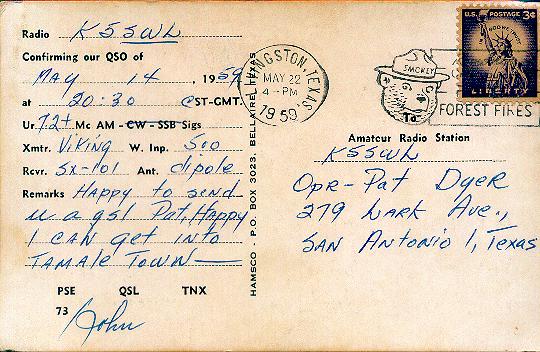 Radio K5SWL
Confirming our QSO of
MAY 14, 1959
at 20:30 CST-GMT.
Ur 72+ Mc AM - CW - SSB Sigs
Xmtr. Viking W. Inp. 500
Rcvr. SX-101 Ant. dipole
Remarks Happy to send
u a qsl Pat, Happy
I CAN get into
TAMALE TOWN —
PSE QSL TNX
73 John
HAMSCO - P.O. BOX 3023, BELLAIRE, TEXAS
LIVINGSTON, TEXAS
MAY 22
4 - PM
1959
SMOKEY
FOREST FIRES
U.S. POSTAGE 3¢
IN GOD WE TRUST
LIBERTY
Amateur Radio Station
K5SWL
Opr - Pat Dyer
279 Lark Ave.,
SAN Antonio 1, Texas